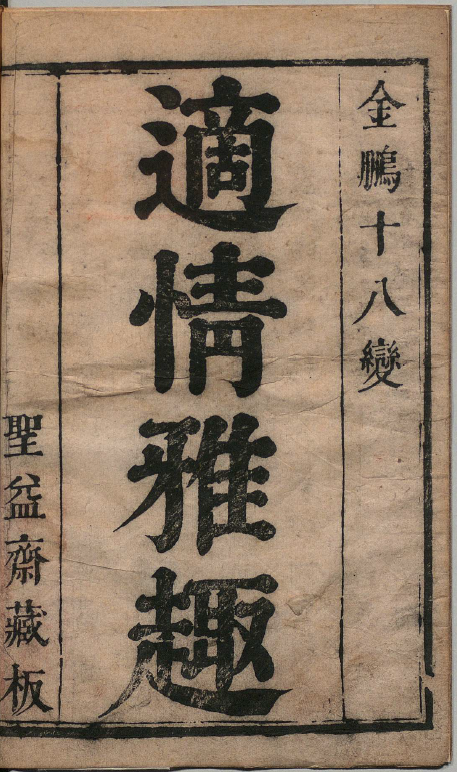 金鵬十八變
適情雅趣
聖益齋藏板